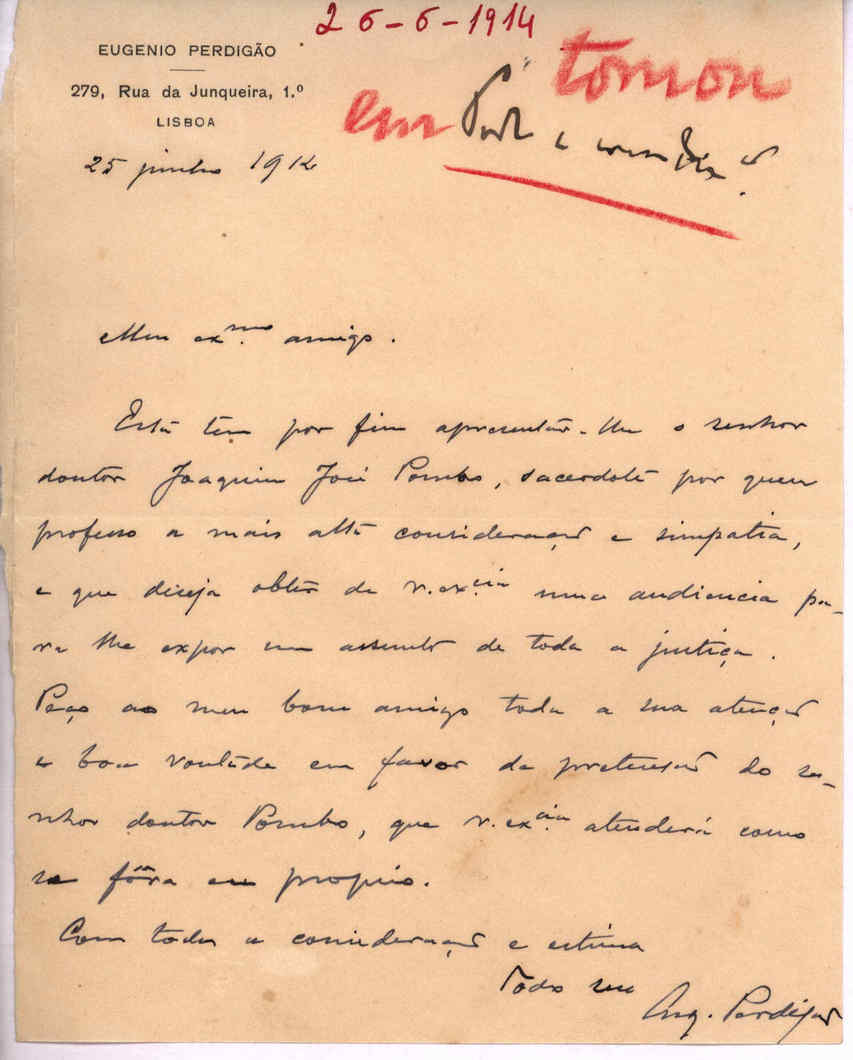 26-6-1914
EUGENIO PERDIGÃO
279, Rua da Junqueira, 1.º
LISBOA
tomou
em
25 junho 1914
Meu ex.mo amigo.
Esta tem por fim apresentar-lhe o senhor
doutor Joaquim José Pombo, sacerdote por quem
professo a mais alta consideração e simpatia,
e que diseja obter de v. ex.cia uma audiencia pa-
ra lhe expor um assunto de toda a justiça.
Peço ao meu bom amigo toda a sua atenção
e boa vontade em favor da pretensão do se-
nhor doutor Pombo, que v. ex.cia atenderá como
se fôra eu proprio.
Com toda a consideração e estima
Todo seu
Eug. Perdigão